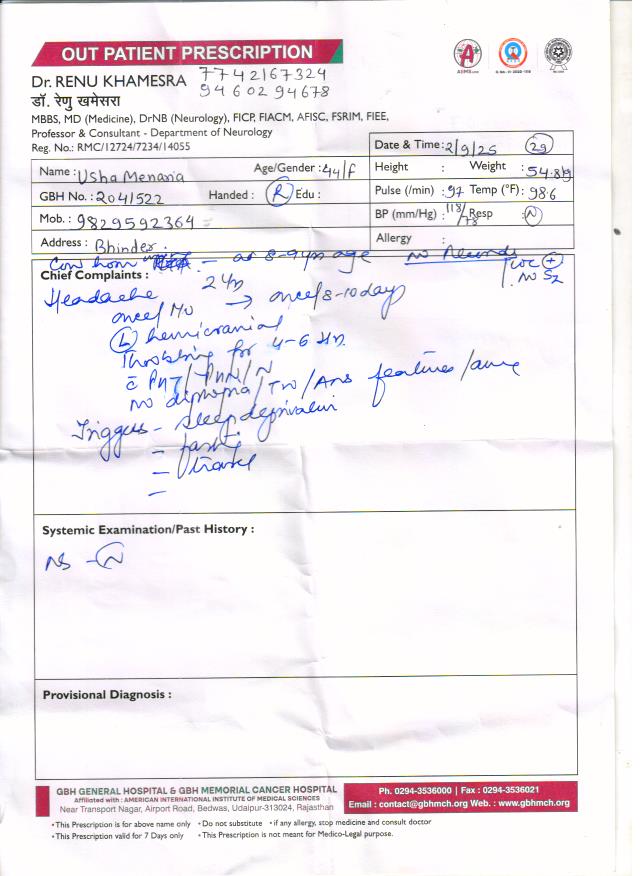 OUT PATIENT PRESCRIPTION
Dr. RENU KHAMESRA 7742167324
9460294678
डॉ. रेणु खमेसरा
MBBS, MD (Medicine), DrNB (Neurology), FICP, FIACM, AFISC, FSRIM, FIEE,
Professor & Consultant - Department of Neurology
Reg. No.: RMC/12724/7234/14055
Date & Time: 2/9/25 29
Name : Usha Menaria Age/Gender : 44/F Height : Weight : 54.8
GBH No. : 2041522 Handed : R Edu : Pulse (/min) : 97 Temp (°F): 98.6
Mob. : 9829592364 BP (mm/Hg) : 118/78 Resp : N
Address : Bhinder. Allergy :
at 8-9 yrs age no Records
Chief Complaints :
Headache 2 Yr
once/Mo → once/8-10 day
(L) hemicranial
Throbbing for 4-6 Hr.
features
Triggers - sleep deprivation
- travel
-
Systemic Examination/Past History :
NS - N
Provisional Diagnosis :
GBH GENERAL HOSPITAL & GBH MEMORIAL CANCER HOSPITAL
Affiliated with : AMERICAN INTERNATIONAL INSTITUTE OF MEDICAL SCIENCES
Near Transport Nagar, Airport Road, Bedwas, Udaipur-313024, Rajasthan
Ph. 0294-3536000 | Fax : 0294-3536021
Email : contact@gbhmch.org Web. : www.gbhmch.org
• This Prescription is for above name only • Do not substitute • if any allergy, stop medicine and consult doctor
• This Prescription valid for 7 Days only • This Prescription is not meant for Medico-Legal purpose.